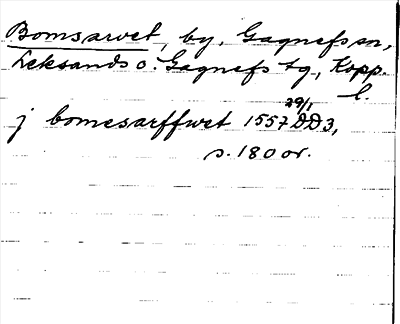 Bomsarvet, by, Gagnefs sn,
Leksands o. Gagnefs tg, Kopp.
l.
j bomesarffwet 1557 29/1 DD3,
s. 180 or.